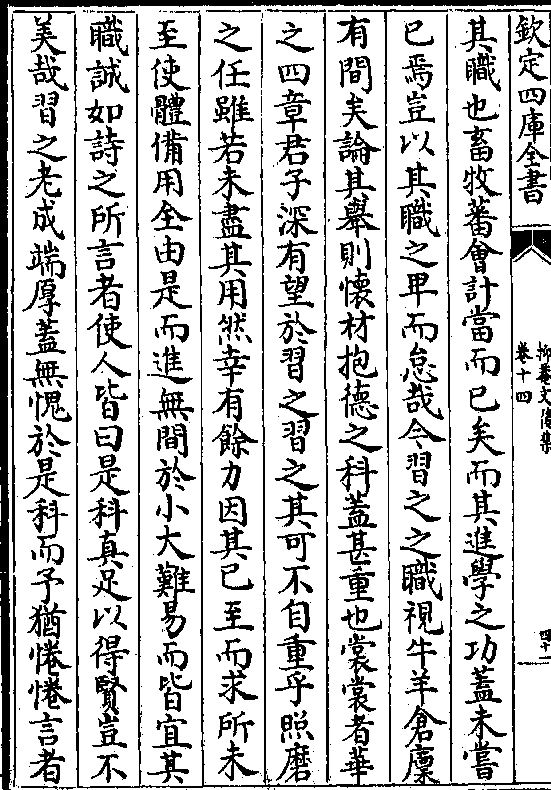 欽定四庫全書
抑菴文後集
卷十四
四十一
其職也畜牧蕃會計當而已矣而其進學之功蓋未嘗
已焉豈以其職之卑而怠哉今習之之職視牛羊倉廩
有間矣論其舉則懷材抱德之科蓋甚重也裳裳者華
之四章君子深有望於習之習之其可不自重乎照磨
之任雖若未盡其用然幸有餘力因其已至而求所未
至使體備用全由是而進無間於小大難易而皆宜其
職誠如詩之所言者使人皆曰是科真足以得賢豈不
美哉習之老成端厚蓋無愧於是科而予猶惓惓言者